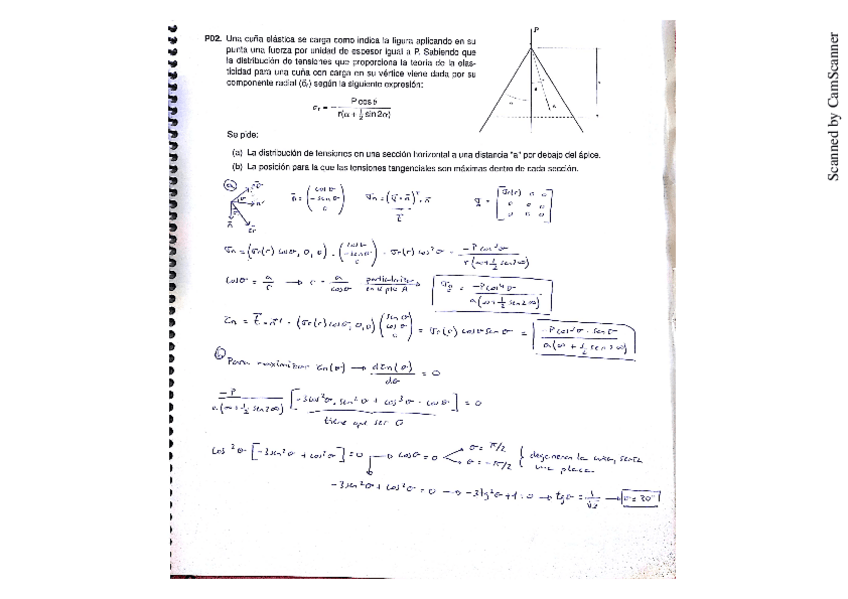 PD2. Una cuña elástica se carga como indica la figura aplicando en su
punta una fuerza por unidad de espesor igual a P. Sabiendo que
la distribución de tensiones que proporciona la teoría de la elas-
ticidad para una cuña con carga en su vértice viene dada por su
componente radial (σr) según la siguiente expresión:
σr = - P cos θ / r(α + ½ sin 2α)
P
Se pide:
(a) La distribución de tensiones en una sección horizontal a una distancia "a" por debajo del ápice.
(b) La posición para la que las tensiones tangenciales son máximas dentro de cada sección.
σn = (σr(r) cosθ, 0, 0) · (cosθ -senθ 0) = σr(r) cos²θ = -P cos³θ / r(α + ½ sen 2α)
cosθ = a/r → r = a/cosθ
σn = -P cos⁴θ / a(α + ½ sen 2α)
τn = t · n' = (σr(r) cosθ, 0, 0) (senθ cosθ 0) = σr(r) cosθ senθ = -P cos³θ · senθ / a(α + ½ sen 2α)
(b) Para maximizar τn(θ) → dτn(θ)/dθ = 0
-P / a(α + ½ sen 2α) [-3cos²θ · sen²θ + cos³θ · cosθ] = 0
tiene que ser 0
cos²θ [-3sen²θ + cos²θ] = 0 → cosθ = 0 θ = π/2 θ = -π/2 degenera la cuña, sería
una placa.
-3sen²θ + cos²θ = 0 → -3tg²θ + 1 = 0 → tgθ = 1/√3 → θ = 30°
Scanned by CamScanner